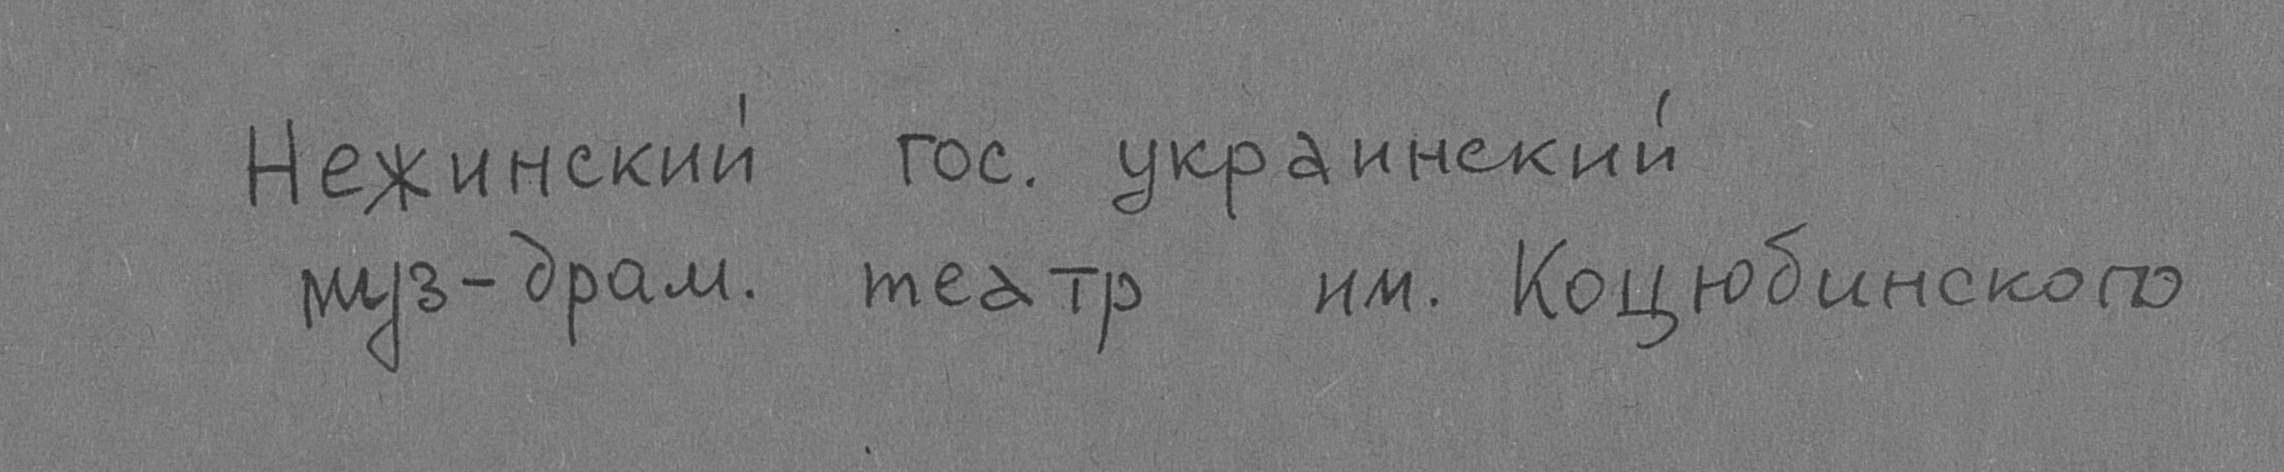 Нежинский гос. украинский
муз-драм. театр им. Коцюбинского